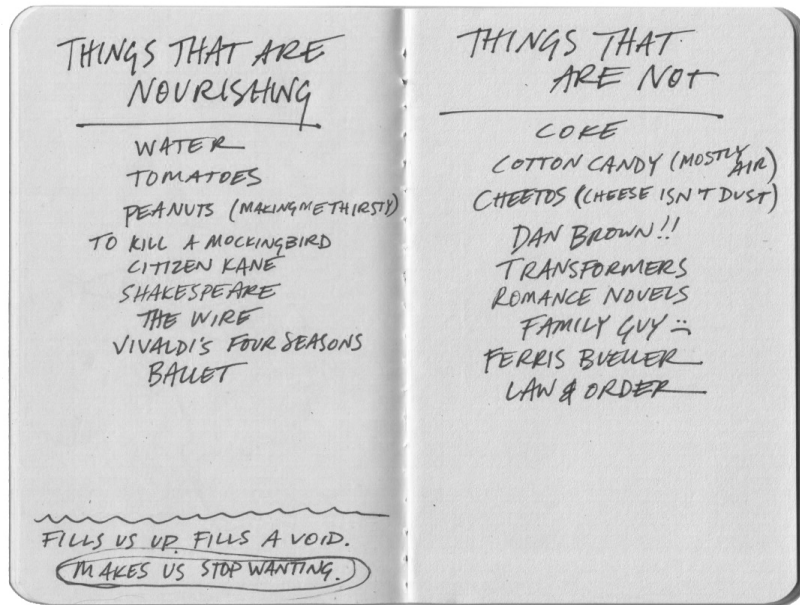 THINGS THAT ARE
NOURISHING
WATER
TOMATOES
PEANUTS (MAKING ME THIRSTY)
TO KILL A MOCKINGBIRD
CITIZEN KANE
SHAKESPEARE
THE WIRE
VIVALDI'S FOUR SEASONS
BALLET
FILLS US UP. FILLS A VOID.
MAKES US STOP WANTING.
THINGS THAT
ARE NOT
COKE
COTTON CANDY (MOSTLY
AIR)
CHEETOS (CHEESE ISN'T DUST)
DAN BROWN!!
TRANSFORMERS
ROMANCE NOVELS
FAMILY GUY :(
FERRIS BUELLER
LAW & ORDER